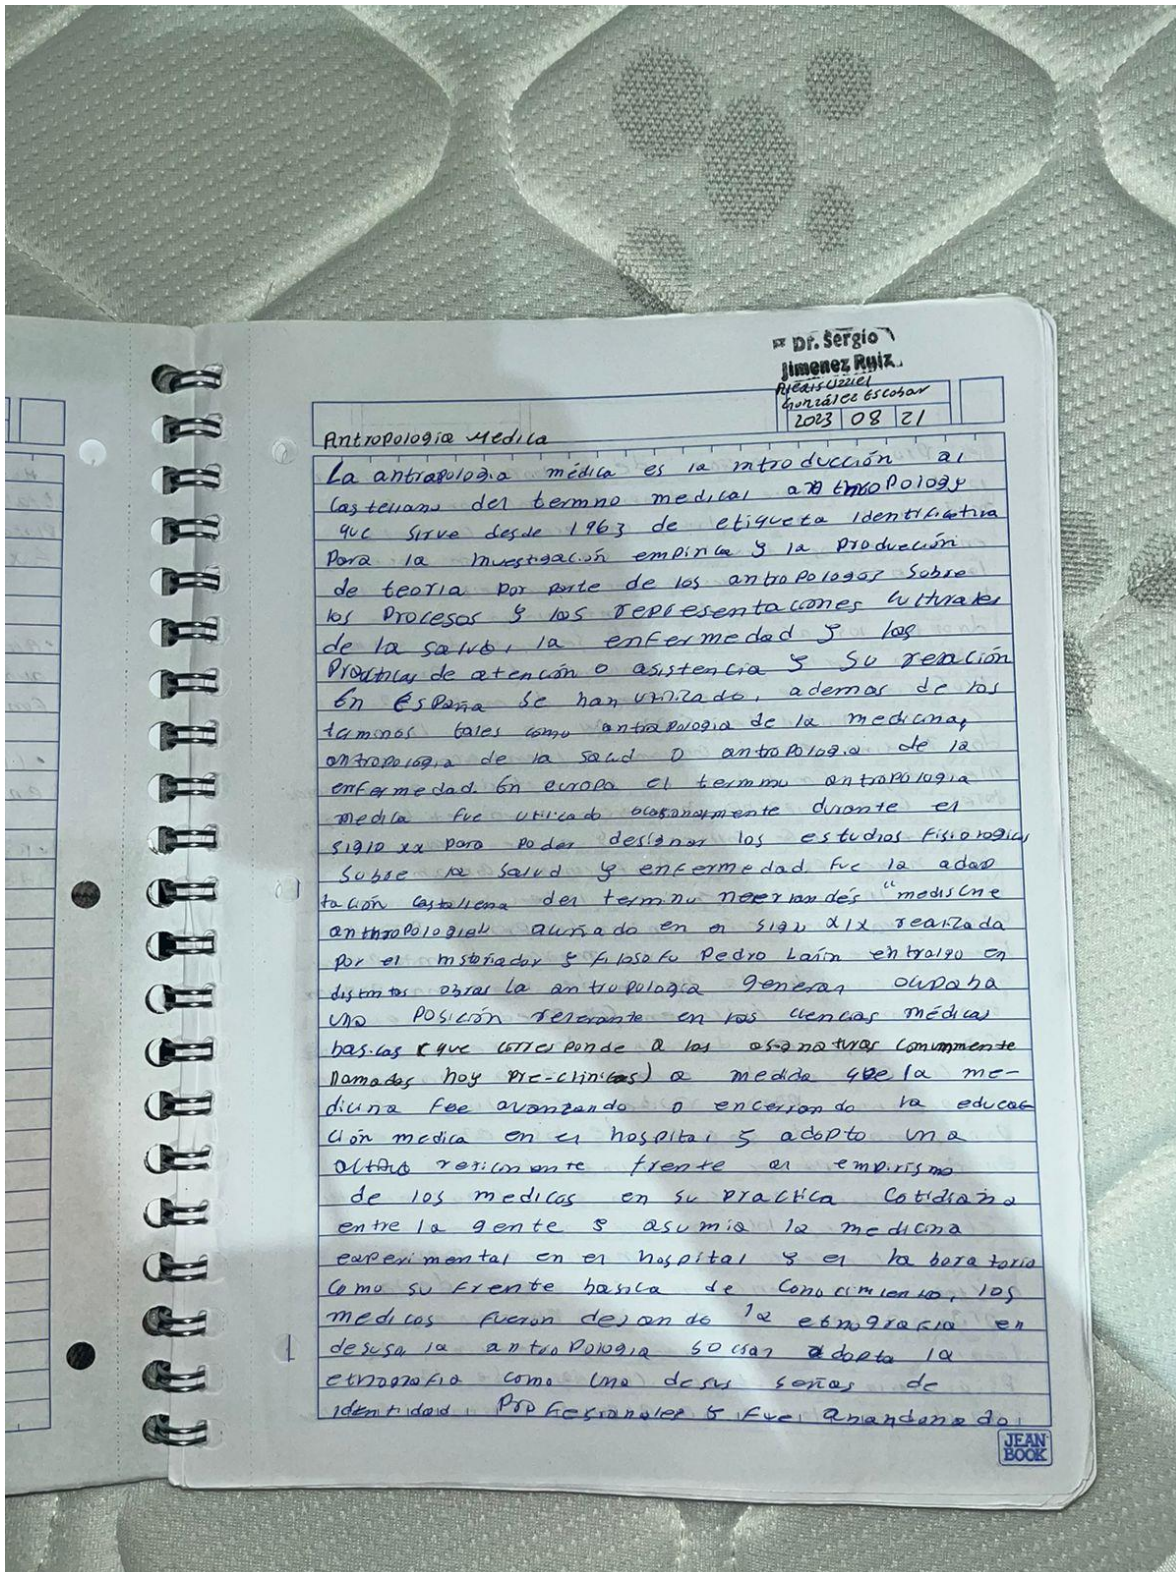 Dr. Sergio
Jimenez Ruiz
Alexis Uzziel
González Escobar
2023 08 21
Antropologia Medica
La antropologia médica es la introducción al
Castellano del termno medical anthropology
que sirve desde 1963 de etiqueta identificativa
Para la investigación empirica y la producción
de teoria por parte de los antropologos sobre
los Procesos y las representaciones culturales
de la salud, la enfermedad y las
Practicas de atención o asistencia y su relación
En España se han utilizado, ademas de los
terminos tales como antropologia de la medicina,
antropologia de la salud o antropologia de la
enfermedad. En europa el termino antropologia
medica fue utilizado ocasionalmente durante el
siglo xx para poder designar los estudios
sobre la salud y enfermedad. fue la adap
tación castellana del termino neerlandés "mediscne
anthropologial" en el siglo XIX realizada
por el historiador y filosofo Pedro Laín entralgo en
distintas obras la antropologia general ocupaba
una Posición relevante en las ciencias médicas
basicas (que corresponde a las asignaturas comunmente
llamadas hoy Pre-clinicas) a medida que la me-
dicina fue avanzando o encerrando la educa
ción medica en el hospital y adopto una
frente al empirismo
de los medicos en su practica cotidiana
entre la gente y asumia la medicina
experimental en el hospital y el laboratorio
Como su frente basica de conocimiento, los
medicos fueron dejando la etnografia en
desuso la antropologia social adopta la
etnografia como una de sus señas de
identidad, Profesionales y fue abandonado.
JEAN
BOOK